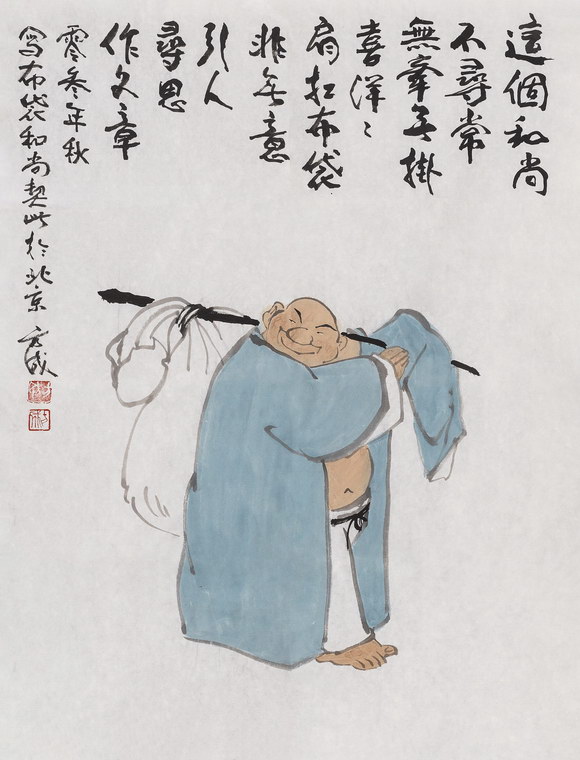 這個和尚
不尋常
無牽无掛
喜洋々
肩扛布袋
非无意
引人
尋思
作文章
零叁年秋
寫布袋和尚契此於北京 方成